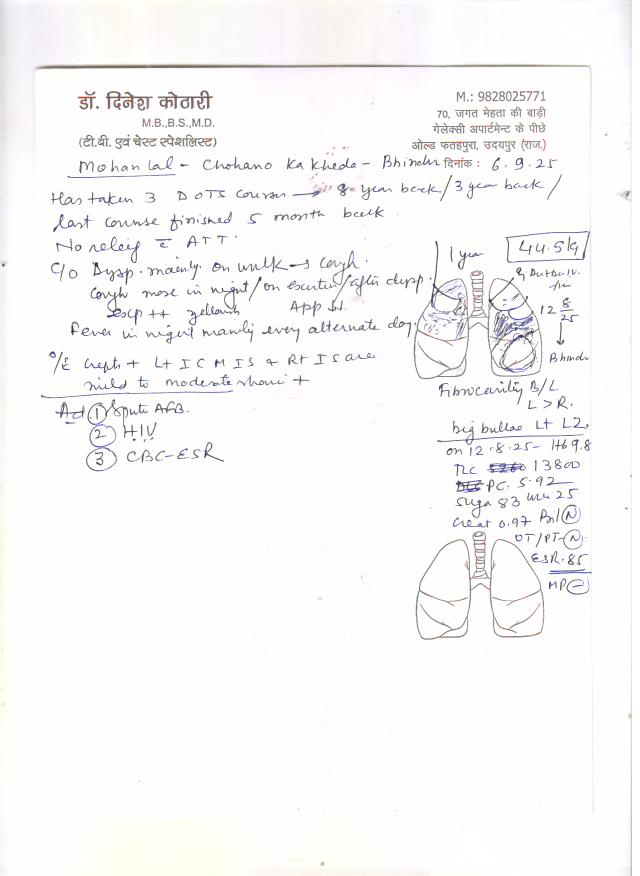 डॉ. दिनेश कोठारी
M.B.,B.S.,M.D.
(टी.बी. एवं चेस्ट स्पेशलिस्ट)
M.: 9828025771
70, जगत मेहता की बाड़ी
गेलेक्सी अपार्टमेन्ट के पीछे
ओल्ड फतहपुरा, उदयपुर (राज.)
Mohan Lal - Chohano Ka Kheda - Bhinder दिनांक : 6.9.25
Has taken 3 DOTS Courses → 8 year back / 3 year back /
last course finished 5 month back
No relief c ATT.
C/o Dysp. mainly on walk → Cough.
Cough more in night / on exertion / after dysp.
Exp ++ yellowish App ↓↓.
Fever in night mainly every alternate day.
O/E Crepts + Lt I C M I S & Rt I S are
mild to moderate +
Ad (1) Sputum AFB.
(2) HIV
(3) CBC-ESR
1 year
44.5 kg
12 8/25
Bhinder
Fibrocavitity B/L
L > R.
big bullae Lt LZ.
on 12.8.25 - Hb 9.8
TLC 13800
PC. 5.92
Suga 83 25
Creat 0.97 Bil (N)
OT/PT - (N)
ESR. 85
MP (-)